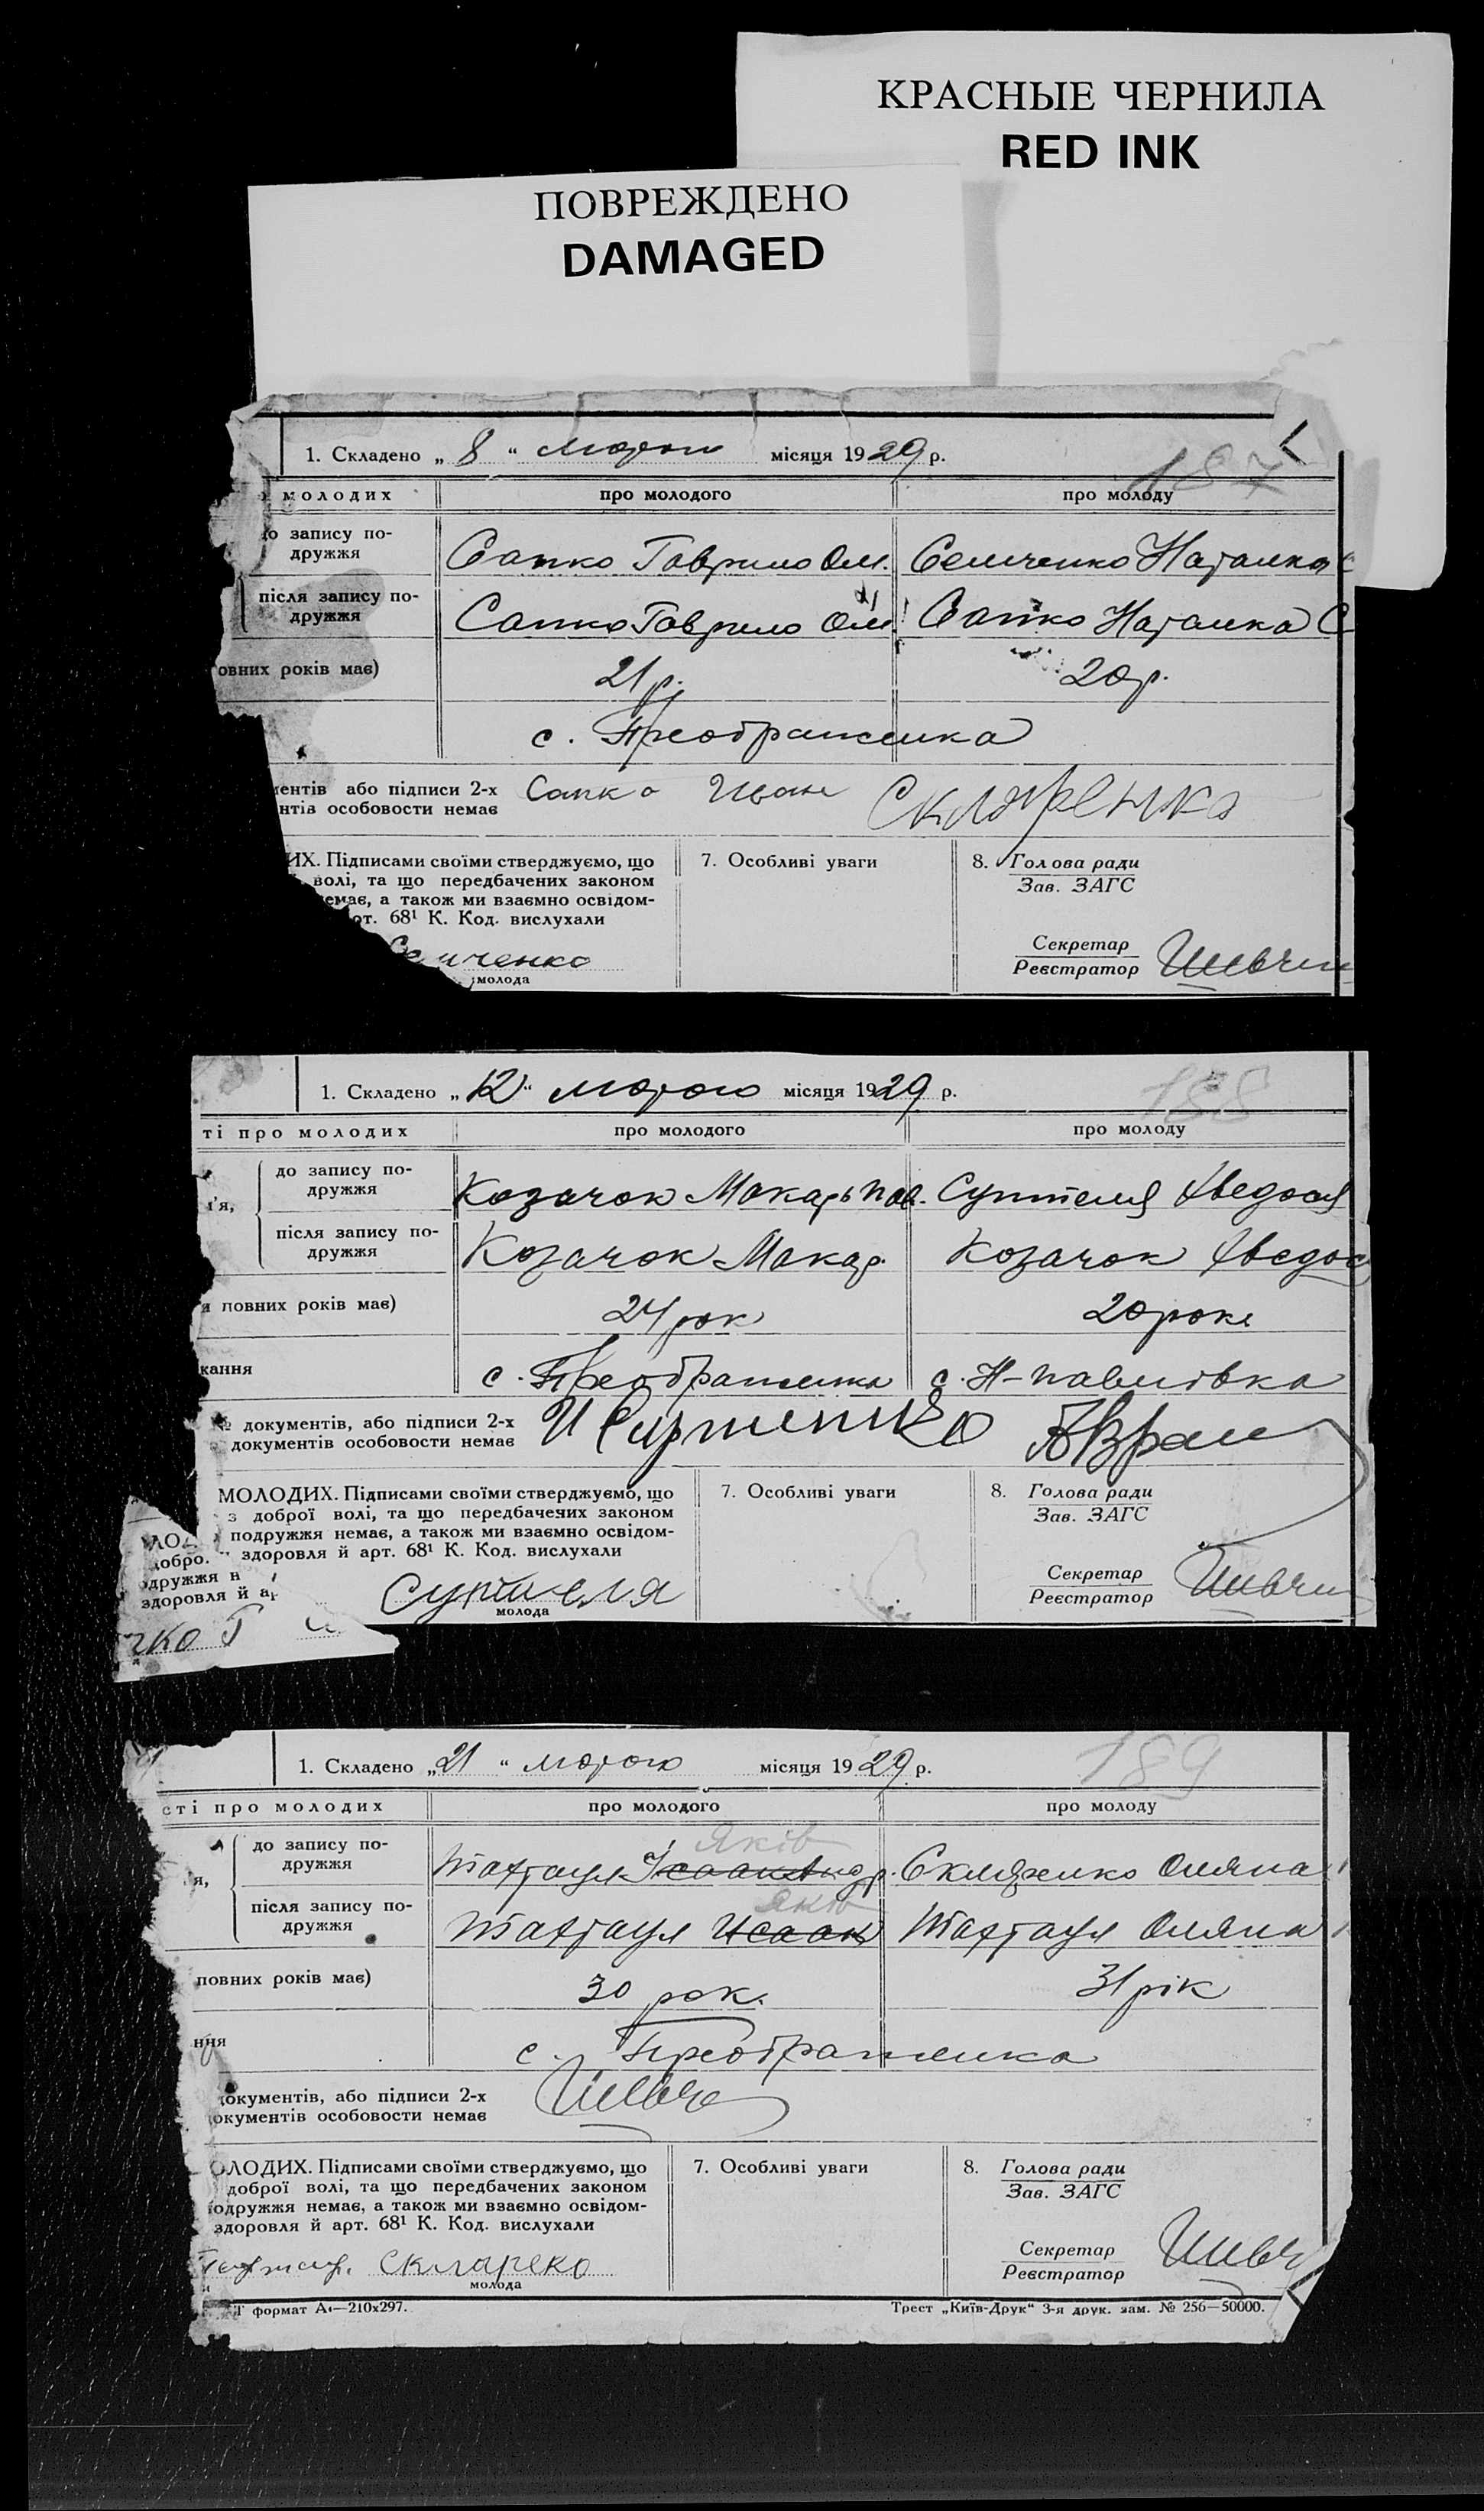 КРАСНЫЕ ЧЕРНИЛА
RED INK
ПОВРЕЖДЕНО
DAMAGED
1. Складено „ 8 “ лютого місяця 1929 р.
187
молодих про молодого про молоду
до запису по-
дружжя
Сапко Гаврило Ом. Семченко Наталка
після запису по-
дружжя
Сапко Гаврило Ом. Сапко Наталка С
овних років має)
21 р. 20 р.
с. Преображенка
ментів або підписи 2-х
нтів особовости немає
Сапко Иван Скляренко
ИХ. Підписами своїми стверджуємо, що
волі, та що передбачених законом
немає, а також ми взаємно освідом-
рт. 68¹ К. Код. вислухали
Семченко
молода
7. Особливі уваги
8. Голова ради
Зав. ЗАГС
Секретар
Реєстратор
1. Складено „ 12 “ лютого місяця 1929 р.
188
ті про молодих про молодого про молоду
м'я,
до запису по-
дружжя
Козачок Макарь Пав. Суптеля Хведося
після запису по-
дружжя
Козачок Макар. Козачок Хведос
повних років має)
24 рок 20 роки
кання
с. Преображенка с. Н-павлівка
№ документів, або підписи 2-х
документів особовости немає
МОЛОДИХ. Підписами своїми стверджуємо, що
з доброї волі, та що передбачених законом
подружжя немає, а також ми взаємно освідом-
здоровля й арт. 68¹ К. Код. вислухали
Суптеля
молода
7. Особливі уваги
8. Голова ради
Зав. ЗАГС
Секретар
Реєстратор
МОЛО
добро.
дружжя н
здоровля й ар
чко Г
1. Складено „ 21 “ лютого місяця 1929 р.
189
сті про молодих про молодого про молоду
я,
до запису по-
дружжя
Яків
Тахтаул Ісаак Андр. Скляренко Оляна
після запису по-
дружжя
Яків
Тахтаул Исаак Тахтаул Оляна
повних років має)
30 рок. 31 рік
ння
с. Преображенка
документів, або підписи 2-х
документів особовости немає
ОЛОДИХ. Підписами своїми стверджуємо, що
доброї волі, та що передбачених законом
подружжя немає, а також ми взаємно освідом-
здоровля й арт. 68¹ К. Код. вислухали
Скляреко
молода
7. Особливі уваги
8. Голова ради
Зав. ЗАГС
Секретар
Реєстратор
Т формат А₄—210х297.
Трест „Київ-Друк“ 3-я друк. зам. № 256—50000.